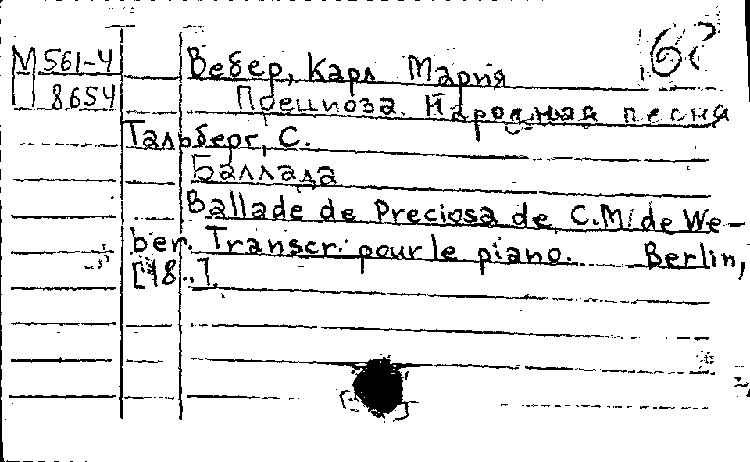 М 561-4
П 8654
62
Вебер, Карл Мария
Прециоза. Народная песня
Тальберг, С.
Баллада
Ballade de Preciosa de C.M. de We-
ber. Transcr. pour le piano. Berlin,
[18..].